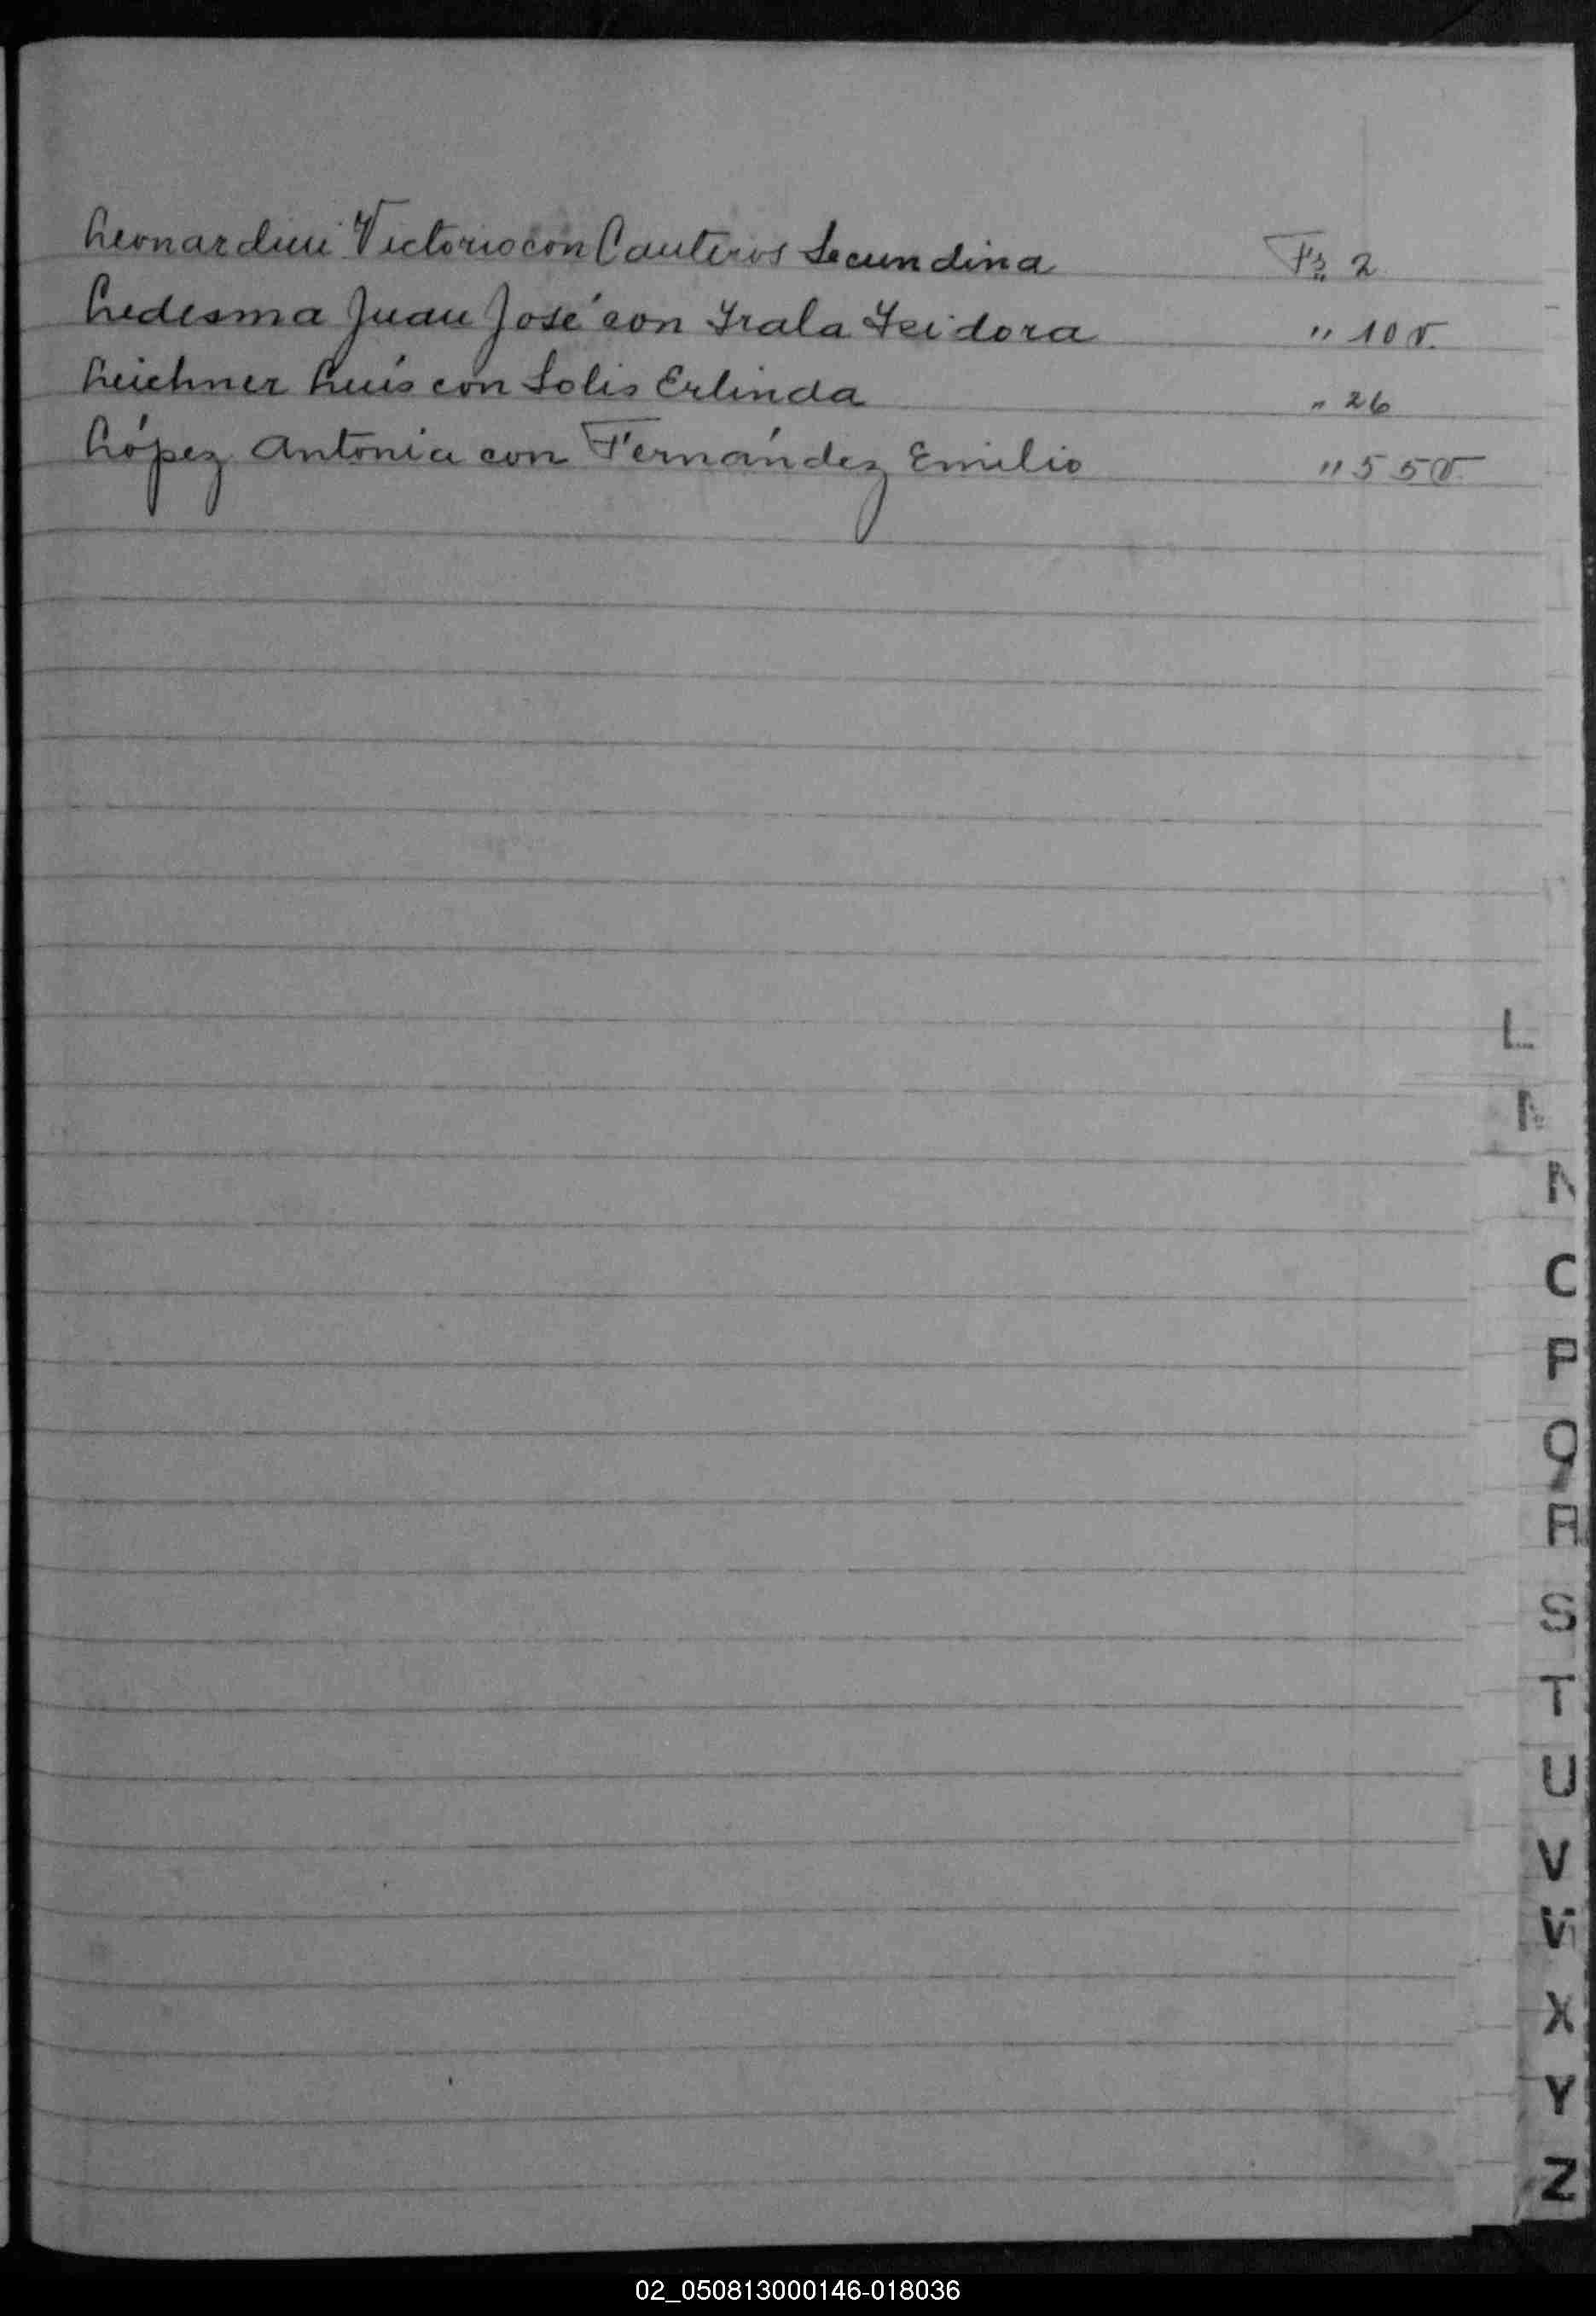 Leonardini Victorio con Canteros Secundina Fs. 2
Ledesma Juan José con Irala Isidora " 10 v.
Leichner Luis con Solis Erlinda " 26
López Antonia con Fernández Emilio " 55 v.
L
M
N
O
P
Q
R
S
T
U
V
W
X
Y
Z
02_050813000146-018036